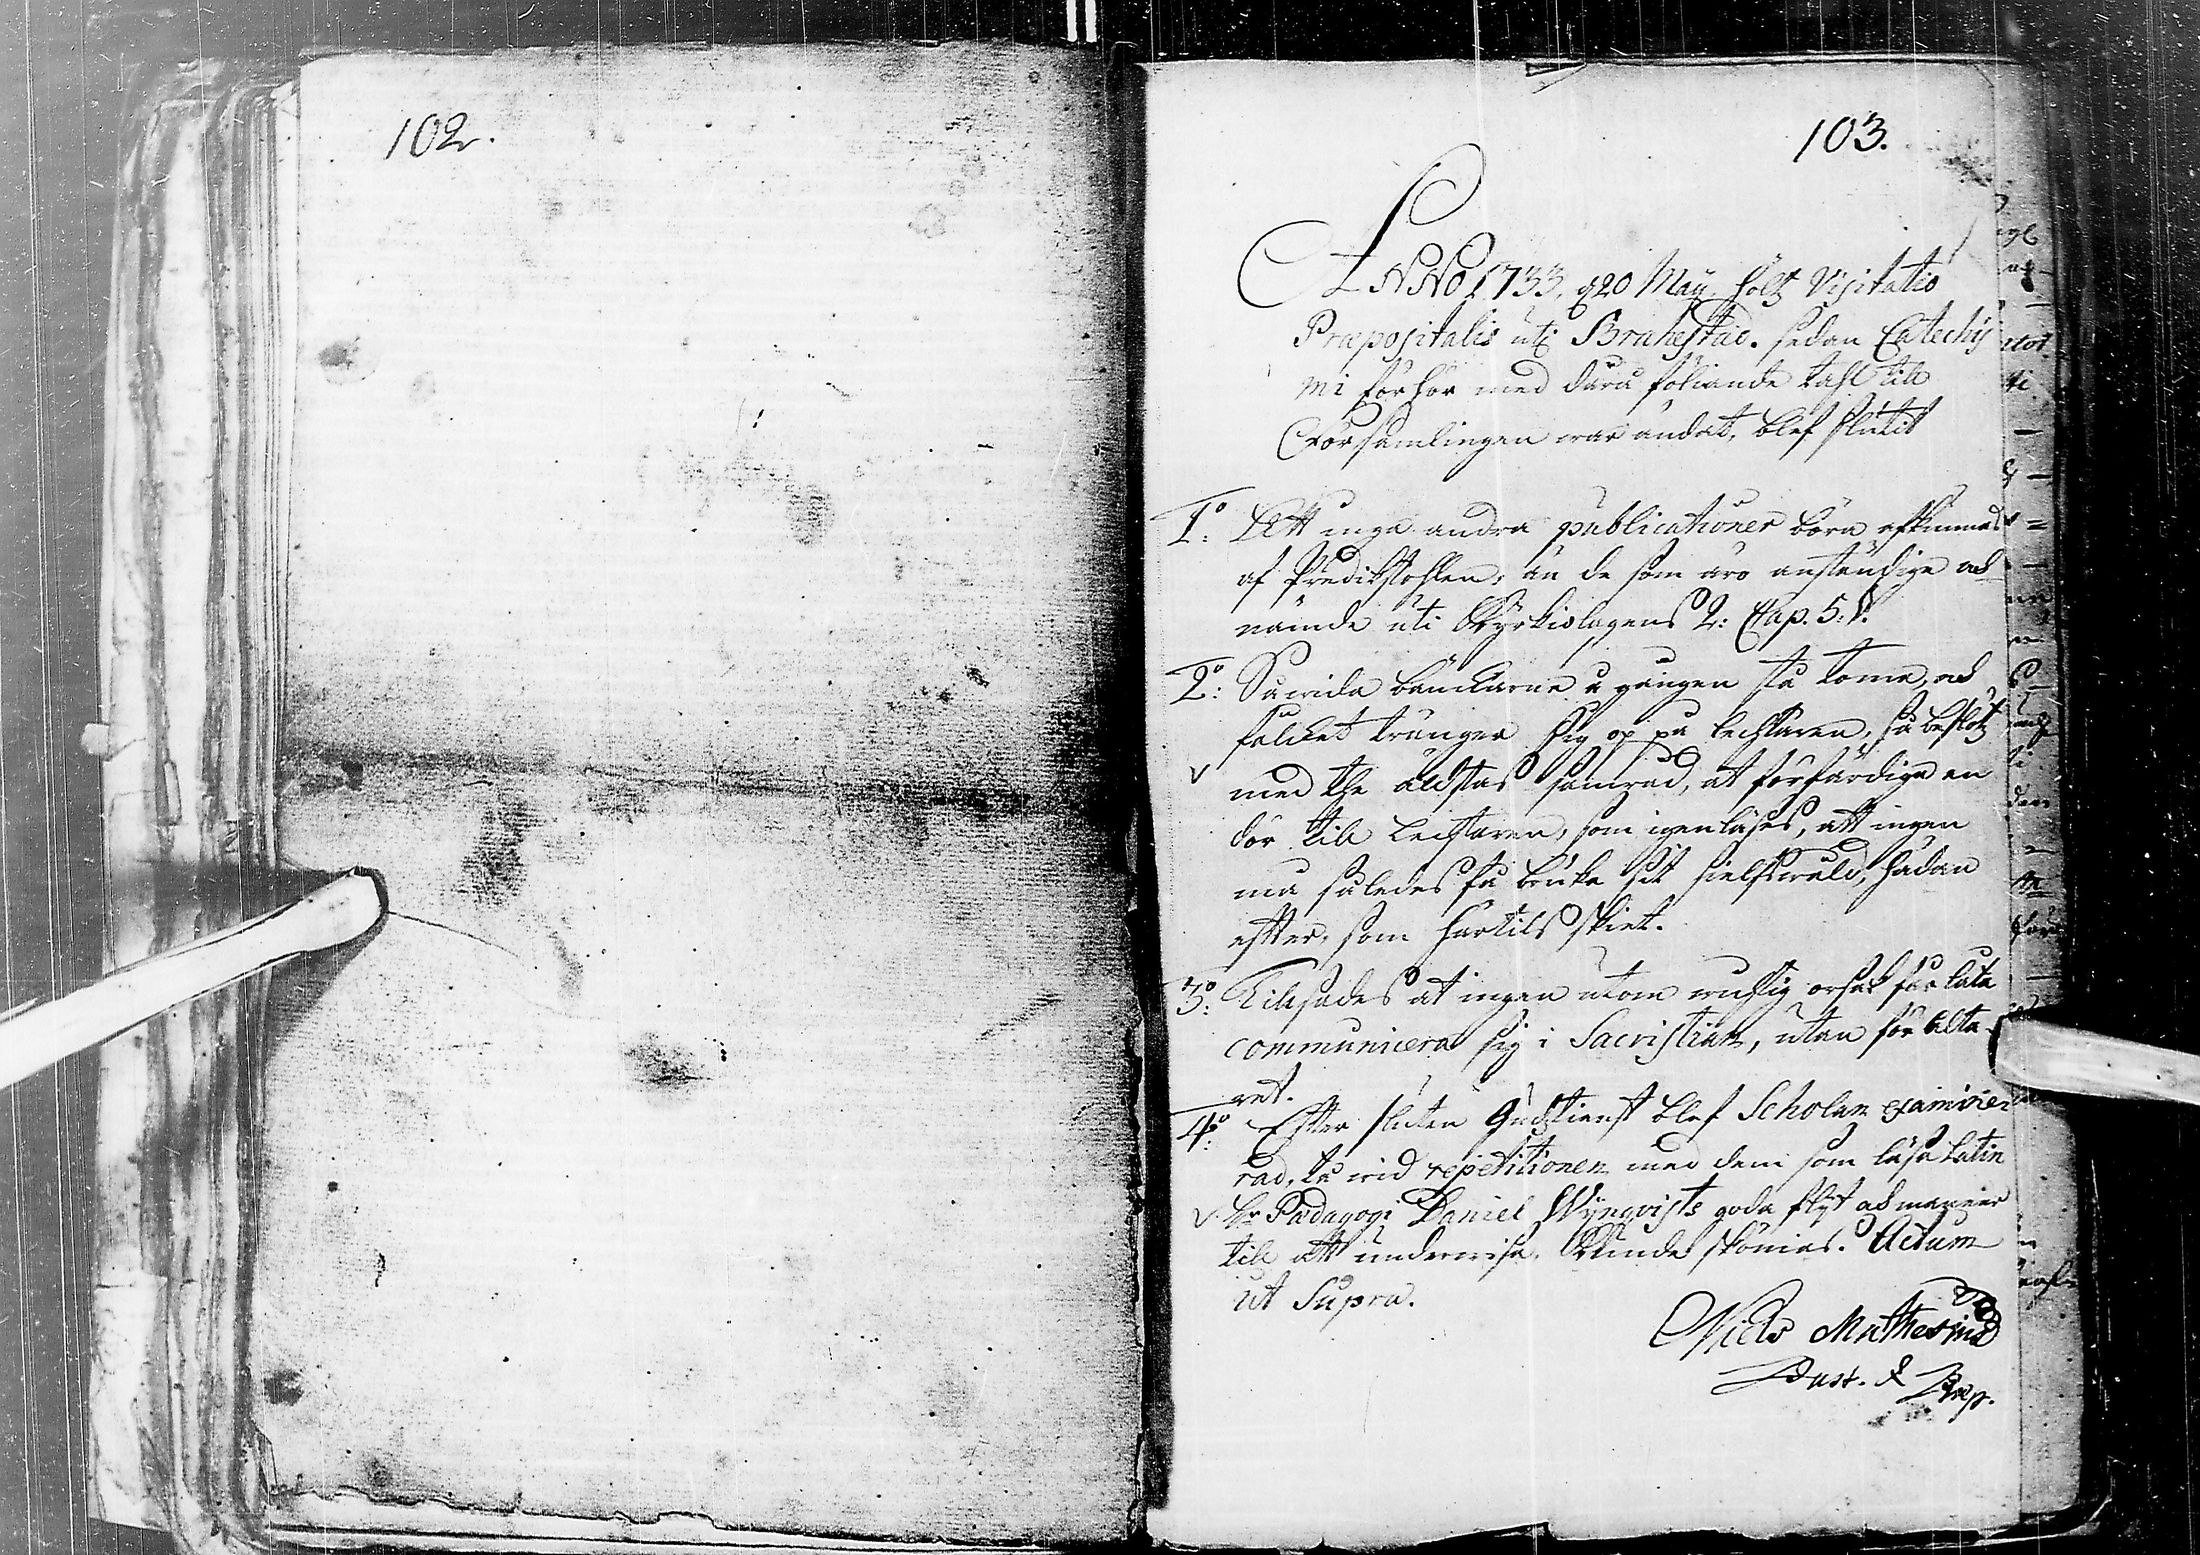 102.
103.
ANNO 1733, d 20 Maÿ, holtz Visitatio
Præpositalis uti Brahestad. sedan Catechis
mi förhör med därå föliande tahl till
Församlingen war ändat, blef slutit
1:o Att inga andra publicationer böra afkunnas
af Predikstohlen, än de som äro anständige och
nämde uti Kyrkiolagens 2: Cap. 5. §.
2:o Såwida bänckarne å gången stå tome, och
folcket tränger sig op på lechtaren, så beslötz
med the äldstas samråd, at förfärdiga en
dör till lechtaren, som igenlåses, att ingen
må således få bruka sit sielfswåld, hädan
efter, som härtils skiet.
3:o Tilsades at ingen utom wichtig orsak får låta
communicera sig i Sacristian, utan för Alta-
ret.
4:o Efter sluten Gudstienst blef Scholan examine-
rad, då wid repetitionen med dem som läsa Latin
Hr Pædagogi Daniel Wynqvists goda flijt och maneer
till att underwisa, kunde skönias. Actum
ut Supra.
Niels Mathesius
Past. & Præp.